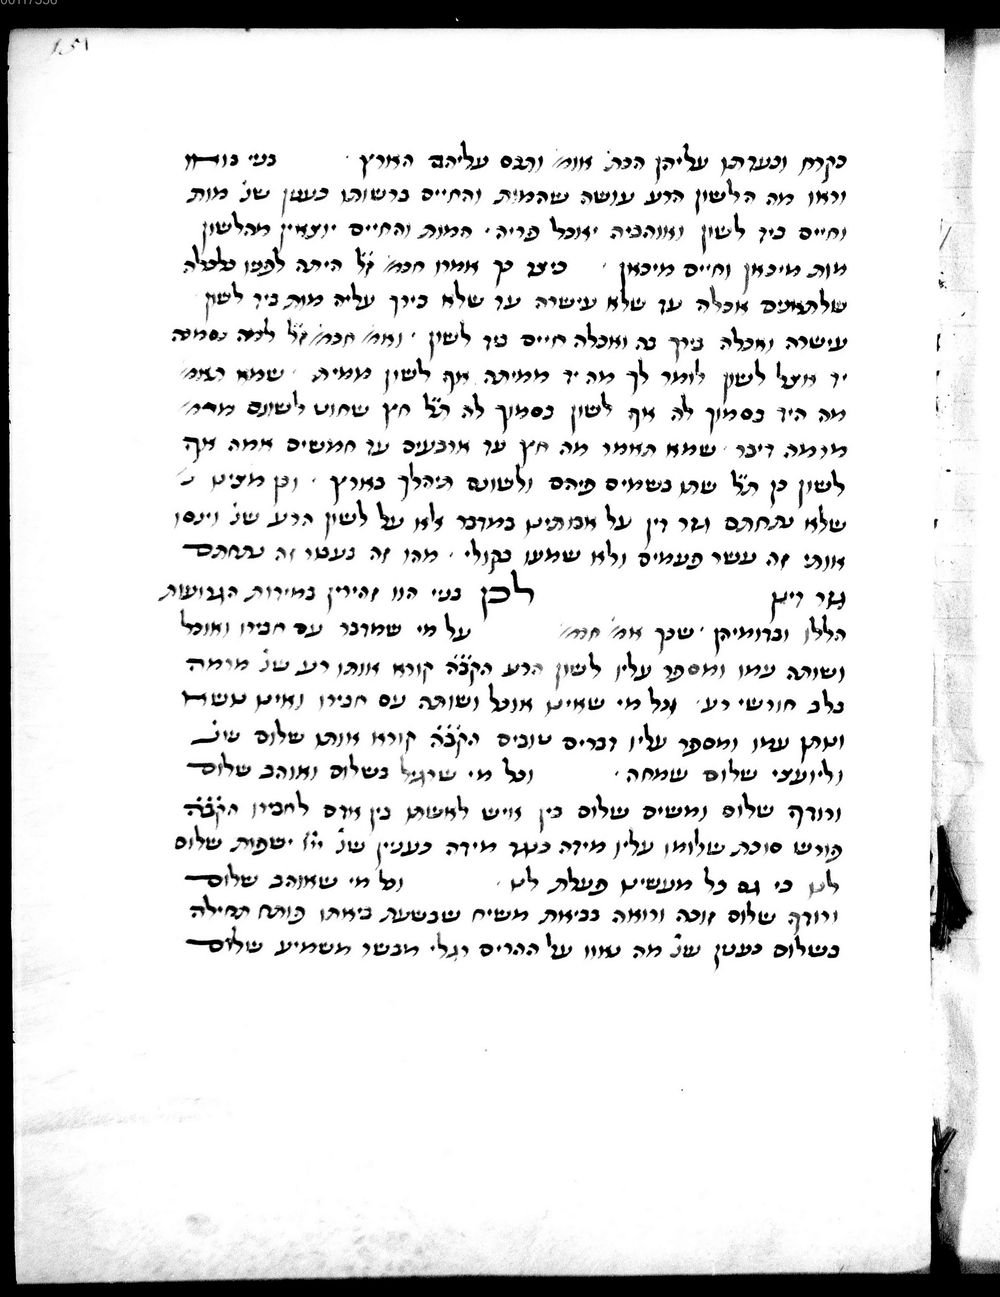 151
בקרח וכעדתו עליהן הכת׳ אומ׳ ותכס עליהם הארץ · בני בואו
וראו מה הלשון הרע עושה שהמות והחיים ברשותו כענין שנ׳ מות
וחיים ביד לשון ואוהביה יאוכל פריה · המות והחיים יוצאין מהלשון
מות מיכאן וחיים מיכאן · כיצד כך אמרו חכמ׳ ז״ל היתה לפניו כלכלה
שלתאנים אכלה עד שלא עישרה עד שלא בירך עליה מות ביד לשון
עישרה ואכלה בירך בה ואכלה חיים ביד לשון · ואמ׳ חכמ׳ ז״ל למה נסמכה
יד אצל לשון לומר לך מה יד ממיתה אף לשון ממית · שמא תאמ׳
מה היד בסמוך לה אף לשון בסמוך לה ת״ל חץ שחוט לשונם מרמ׳
מרמה דיבר · שמא תאמר מה חץ עד ארבעים עד חמשים אמה אף
לשון כן ת״ל שתו בשמים פיהם ולשונם תיהלך בארץ · וכן מצינו
שלא נתחתם גזר דין על אבותינו במדבר אלא על לשון הרע שנ׳ וינסו
אותי זה עשר פעמים ולא שמעו בקולי · מהו זה בעבור זה נתחתם
גזר דינן לכן בני הוו זהירין במידות הגרועות
הללו וכדומיהן · שכך אמ׳ חכמ׳ על מי שמדבר עם חבירו ואוכל
ושותה עמו ומספר עליו לשון הרע הקב״ה קורא אותו רע שנ׳ מרמה
בלב חורשי רע · וכל מי שאינו אוכל ושותה עם חבירו ואינו
ונותן עמו ומספר עליו דברים טובים הקב״ה קורא אותו שלום שנ׳
וליועצי שלום שמחה · וכל מי שרגיל בשלום ואוהב שלום
ורודף שלום ומשים שלום בין איש לאשתו בין אדם לחבירו הקב״ה
פורש סוכת שלומו עליו מידה כנגד מידה כענין שנ׳ יי׳ ישפות שלום
לנו כי גם כל מעשינו פעלת לנו · וכל מי שאוהב שלום
ורודף שלום זוכה ורואה בביאת משיח שבשעת ביאתו פותח תחילה
בשלום כענין שנ׳ מה נאוו על ההרים רגלי מבשר משמיע שלום